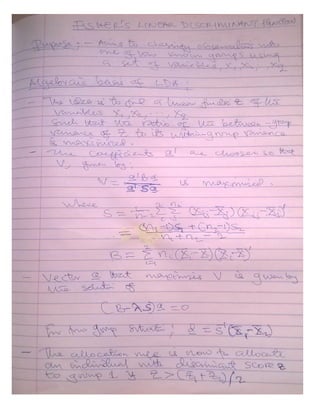 FISHER'S LINEAR DISCRIMINANT FUNCTION
Purpose: - Aims to classify observation into
one of two known groups using
a set of variables, x₁, x₂, ... xq
Algebraic basis of LDA;
- The idea is to find a linear function z of the
variables x₁, x₂, ..., xq
Such that the ratio of the between-group
variance of Z to its within-group variance
is maximized.
- The coefficients a' are chosen so that
V, given by;
V = a'Ba / a'Sa is maximized.
where
S = 1/(n-2) Σ Σ (Xij - X̄i)(Xij - X̄i)'
= (n₁-1)S₁ + (n₂-1)S₂ / n₁+n₂-2
B = Σ ni (X̄i - X̄)(X̄i - X̄)'
- Vector a that maximises V is given by
the solution of
(B - λS)a = 0
For two group situation; a = S⁻¹(X̄₁ - X̄₂)
- The allocation rule is now to allocate
an individual with discriminant score z
to group 1 if Z > (Z̄₁ + Z̄₂)/2